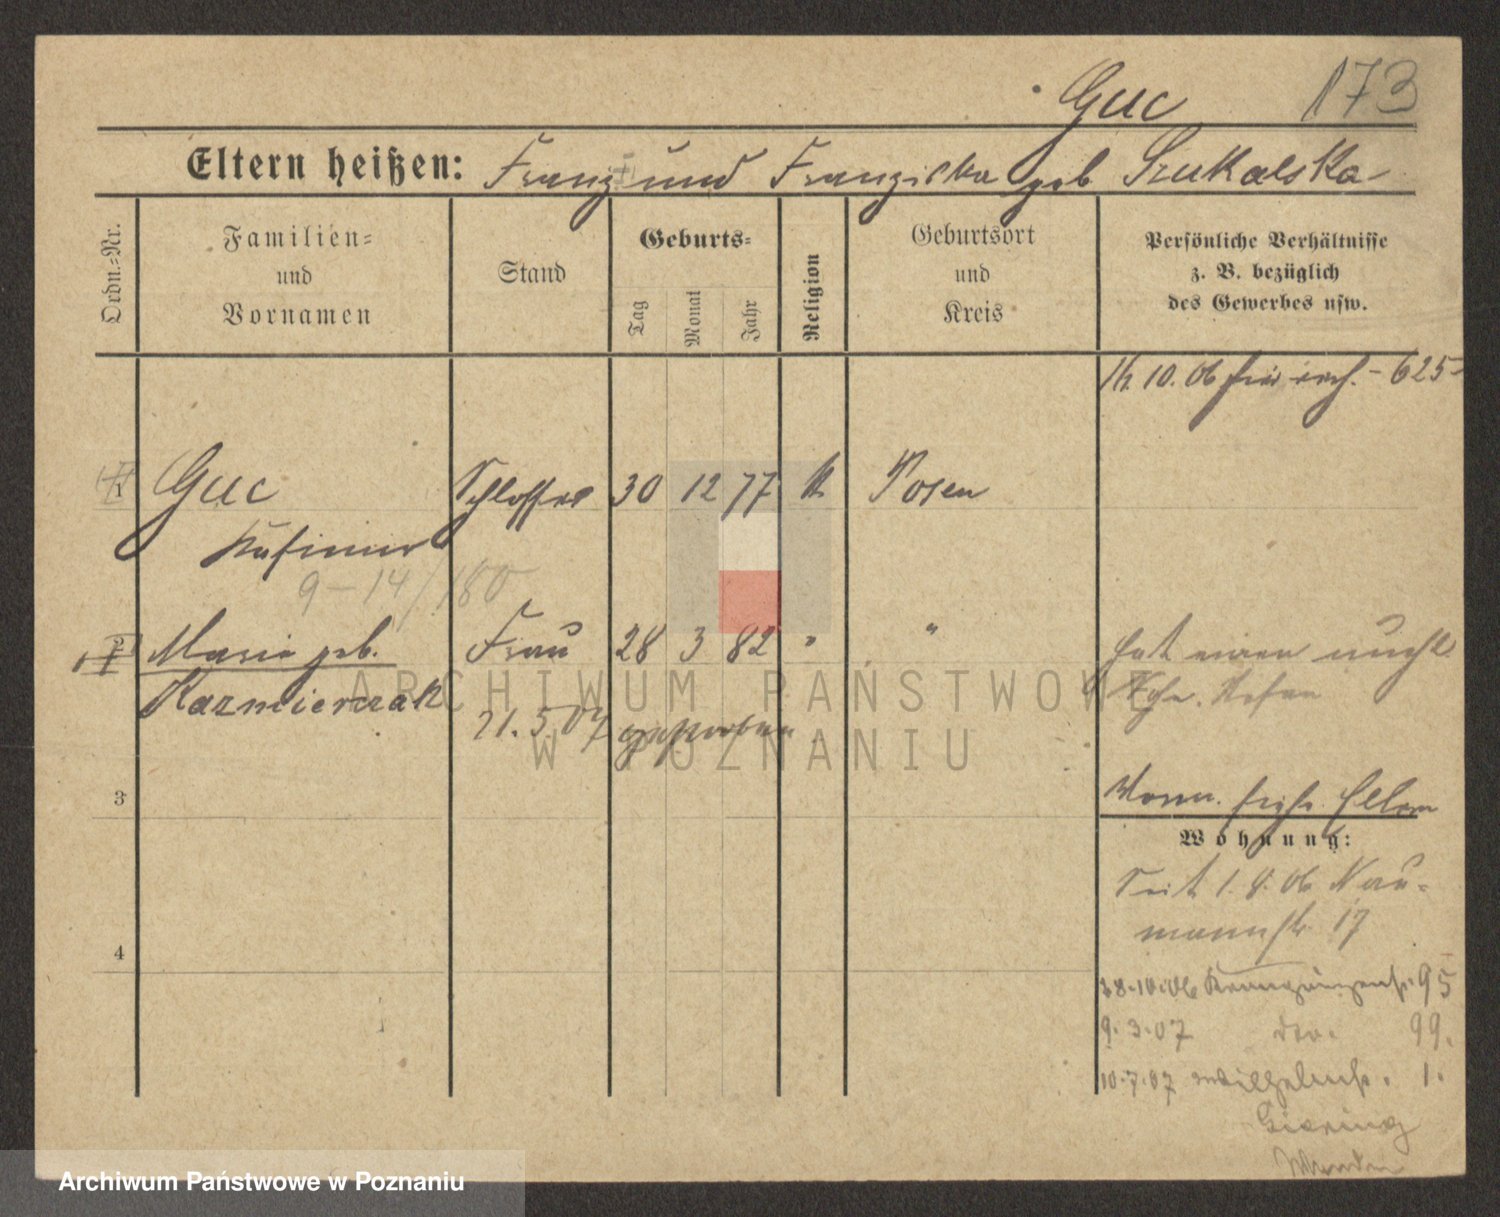 Guc 173
Eltern heißen: Franz und Franziska geb Szukalska
Ordn.-Nr.
Familien-
und
Vornamen
Stand
Geburts-
Tag
Monat
Jahr
Religion
Geburtsort
und
Kreis
Persönliche Verhältnisse
z. B. bezüglich
des Gewerbes usw.
10. 06 - 625-
1 Guc Schlosser 30 12 77 k Posen
Kasimir
9-14/180
2 Maria geb. Frau 28 3 82 " "
Kazmierczak
21.5.07 gestorben
hat einen unehl
Sohn. Stefan
3
Wohnung:
Seit 1.8.06 Nau-
mannstr 17
4
28.10.06 95
9.3.07 dto. 99.
10.7.07 Wilhelmstr. 1.
ARCHIWUM PAŃSTWOWE
W POZNANIU
Archiwum Państwowe w Poznaniu